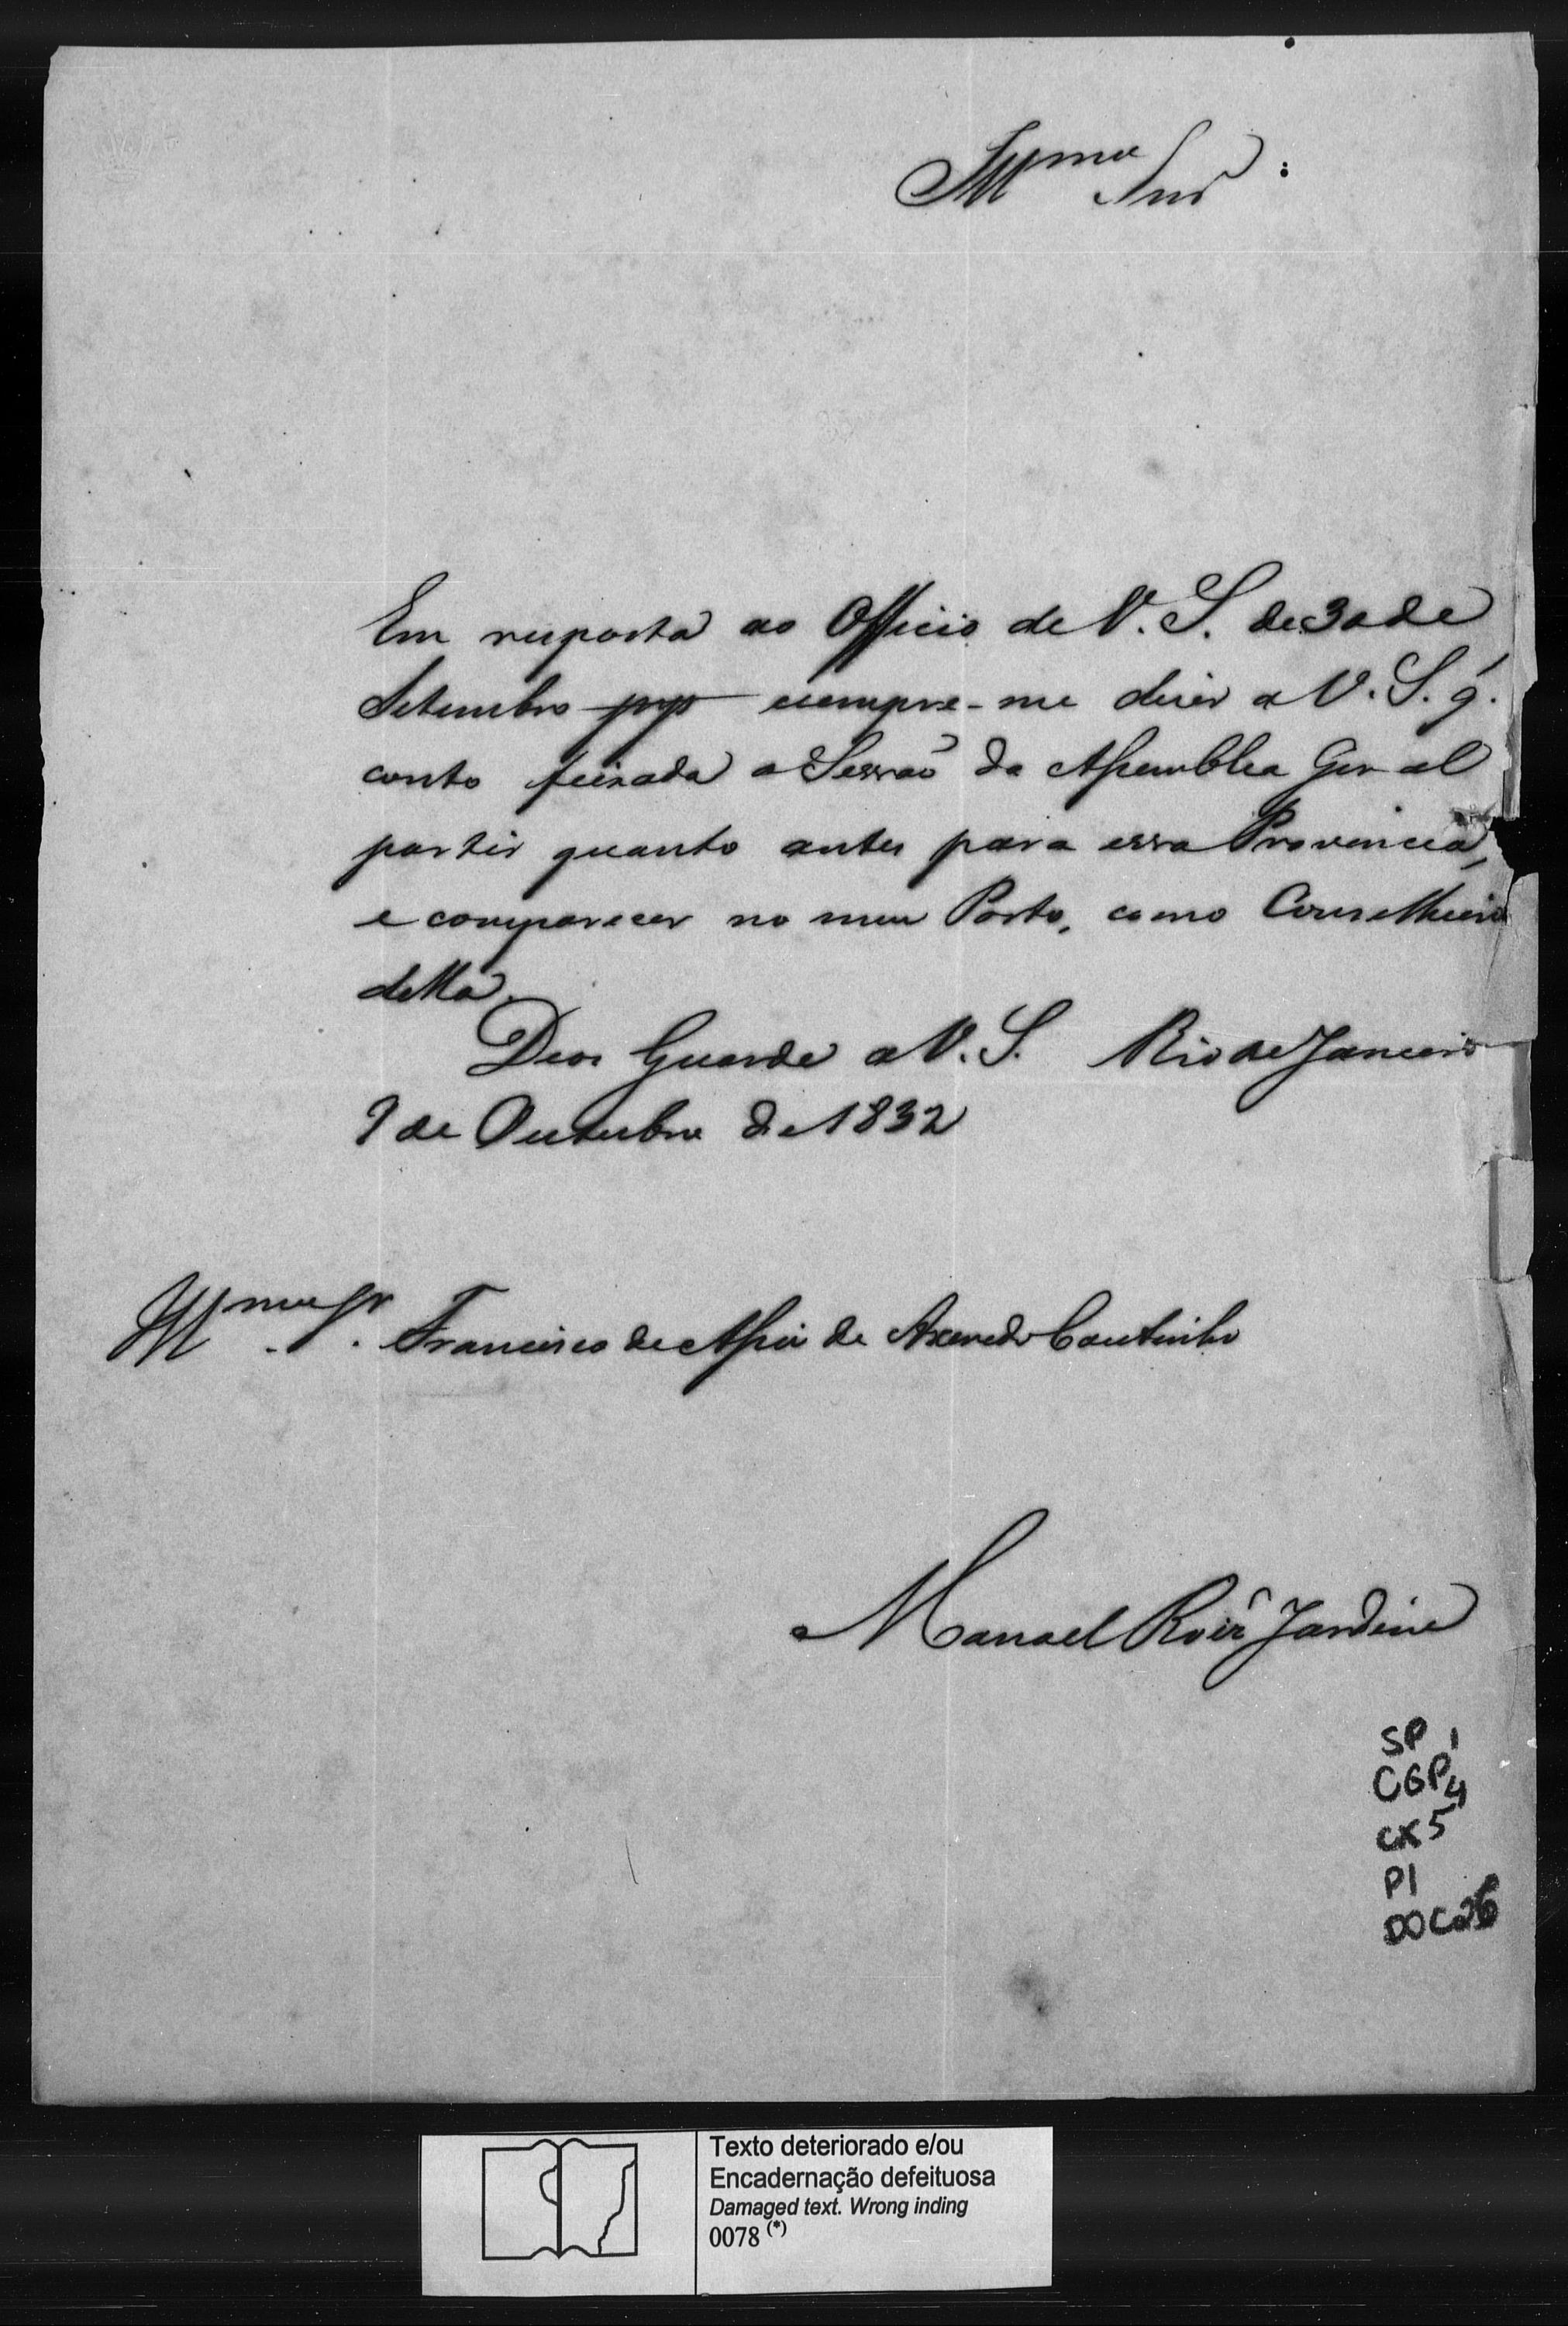 Illmo Snr :
Em resposta ao Officio de V. S. de 30 de
Setembro pp cumpre-me dizer a V. S. q.
conto feixada a Sessaõ da Assemblea Geral
partir quanto antes para essa Provincia,
e comparecer no meu Posto, como Conselheiro
della.
Deos Guarde a V. S. Rio de Janeiro
9 de Outubro de 1832
Illmo Sr. Francisco de Assis de Azeredo Coutinho
Manoel Roiz Jardim
SP 1
CGP 4
CX 5
P1
DOC 26
Texto deteriorado e/ou
Encadernação defeituosa
Damaged text. Wrong inding
0078 (*)